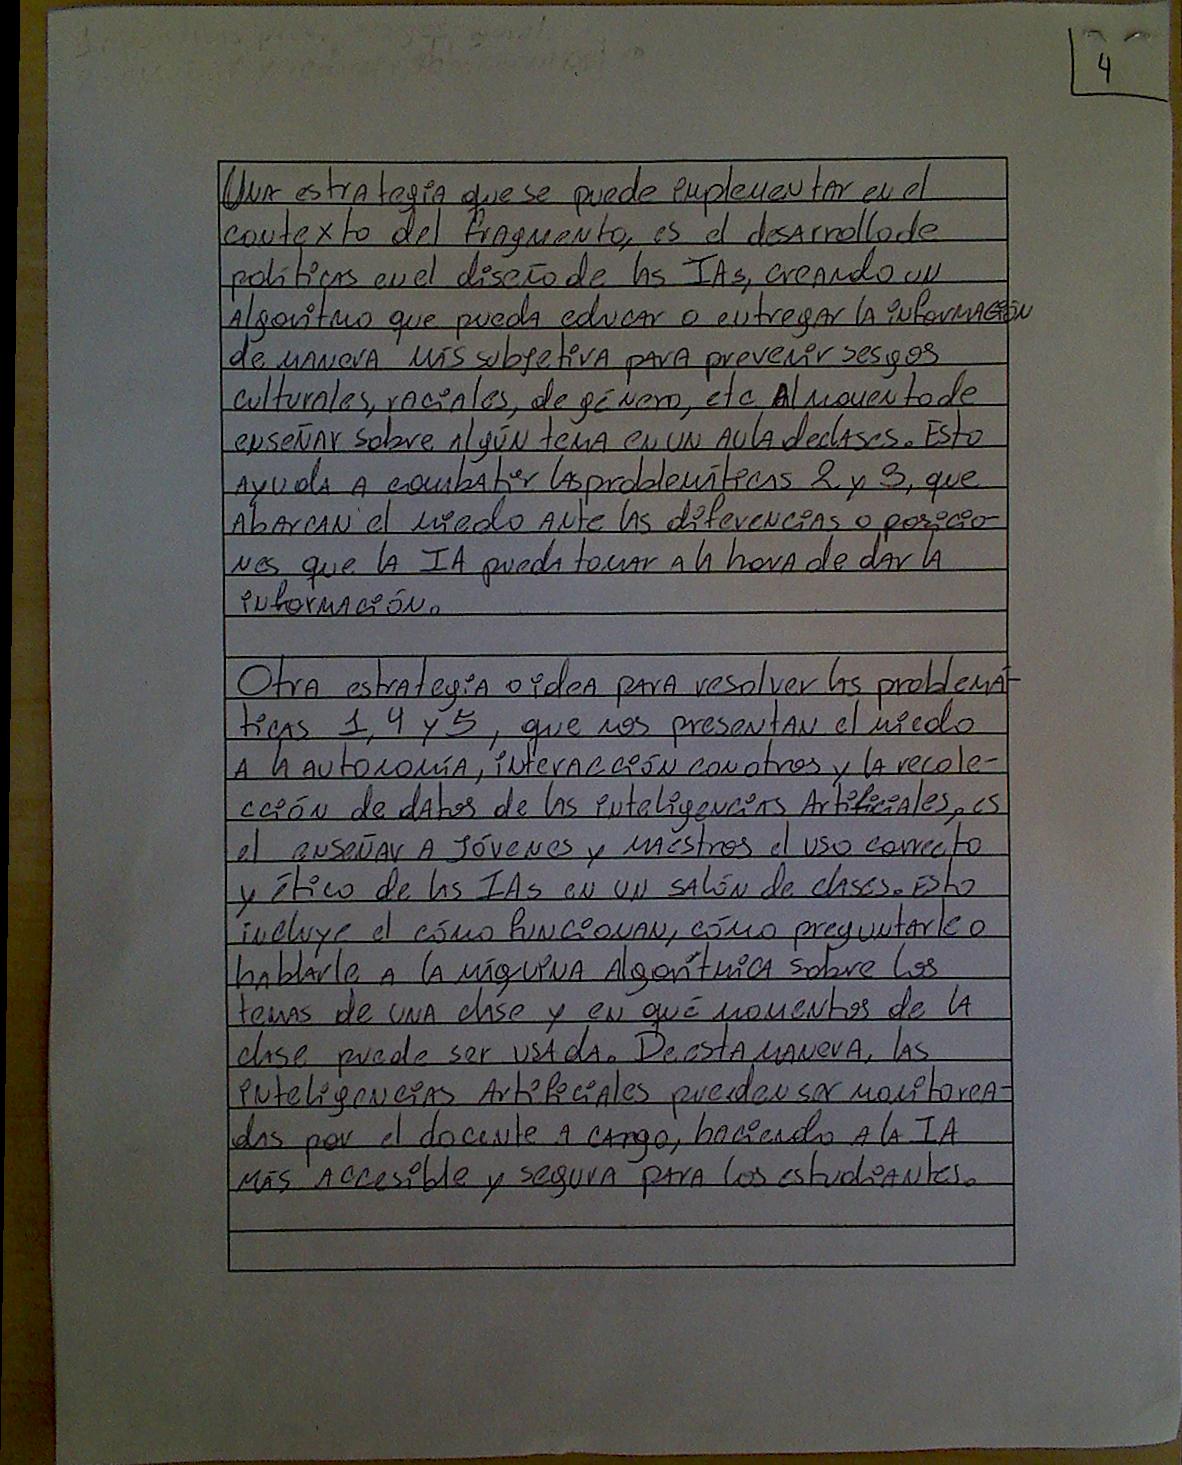 4
Una estrategia que se puede implementar en el
contexto del fragmento, es el desarrollo de
políticas en el diseño de las IAs, creando un
algoritmo que pueda educar o entregar la información
de manera más subjetiva para prevenir sesgos
culturales, raciales, de género, etc Al momento de
enseñar sobre algún tema en un aula de clases. Esto
ayuda a combatir las problemáticas 2 y 3, que
abarcan el miedo ante las diferencias o posicio-
nes que la IA pueda tomar a la hora de dar la
información.
Otra estrategia o idea para resolver las problemá-
ticas 1, 4 y 5, que nos presentan el miedo
a la autonomía, interacción con otros y la recole-
cción de datos de las inteligencias Artificiales, es
el enseñar a jóvenes y maestros el uso correcto
y ético de las IAs en un salón de clases. Esto
incluye el cómo funcionan, cómo preguntarle o
hablarle a la máquina algorítmica sobre los
temas de una clase y en qué momentos de la
clase puede ser usada. De esta manera, las
inteligencias Artificiales pueden ser monitorea-
das por el docente a cargo, haciendo a la IA
más accesible y segura para los estudiantes.